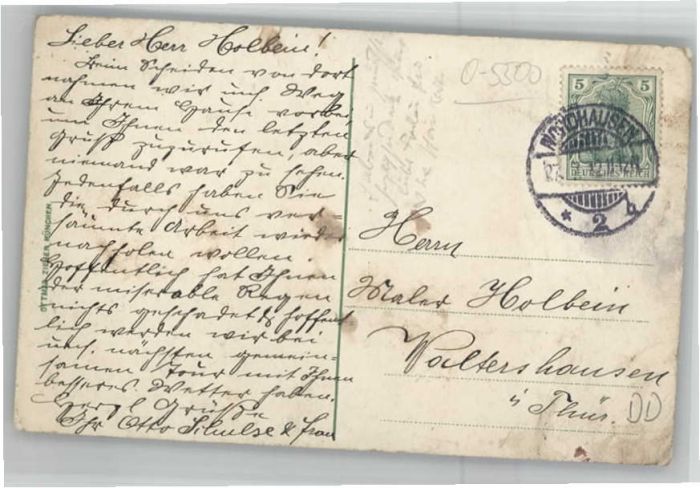 Lieber Herr Holbein!
Beim Scheiden von dort
nahmen wir uns. Weg
an Ihrem Hause vorbei
um Ihnen den letzten
Gruß zuzurufen, aber
niemand war zu sehen.
Jedenfalls haben Sie
die durch uns ver=
säumte Arbeit wieder
nachholen wollen.
Hoffentlich hat Ihnen
der miserable Regen
nichts geschadet & hoffent
lich werden wir bei
uns. nächsten gemein=
samen Tour mit Ihnen
besseres Wetter haben.
Herzl Grüße
Ihr Otto Schulze & Frau
OTTMAR ZIEHER, MÜNCHEN
0-5500
5 5
DEUTSCHES REICH
NORDHAUSEN
* 2 b
Herrn
Maler Holbein
Waltershausen
i/ Thür.
DD